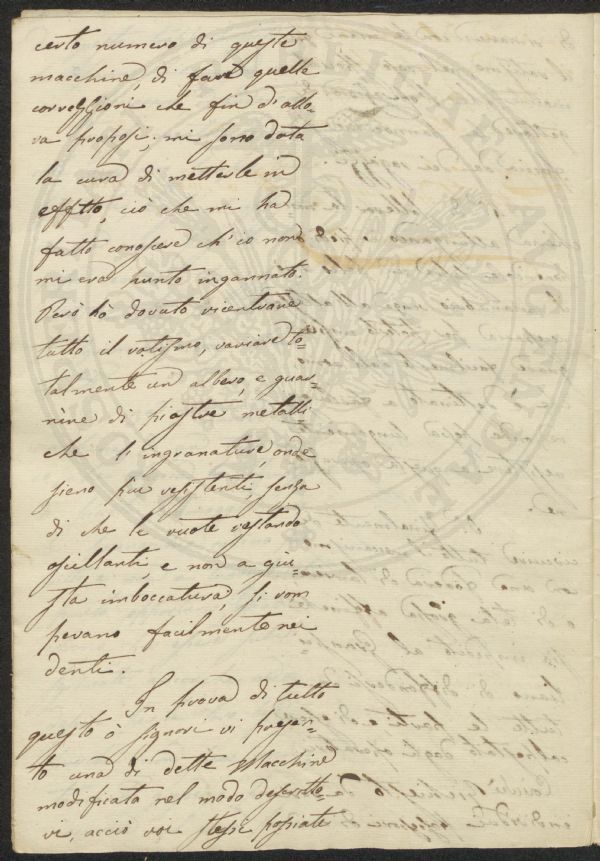 certo numero di queste
macchine, di fare quelle
correzzioni che fin d'allo=
ra proposi, mi sono data
la cura di metterle in
effetto, ciò che mi ha
fatto conoscere ch'io non
mi era punto ingannato.
Però hò dovuto ricentrare
tutto il rotismo, variare to=
talmente un albero, e guar=
nire di piastre metalli
che l'ingranature, onde
sieno piu resistenti, senza
di che le ruote restando
oscillanti, e non a giu=
sta imboccatura, si rom
pevano facilmente nei
denti.
In prova di tutto
questo ò Signori vi presen=
to una di dette Macchine
modificata nel modo descritto=
vi, acciò voi stessi possiate